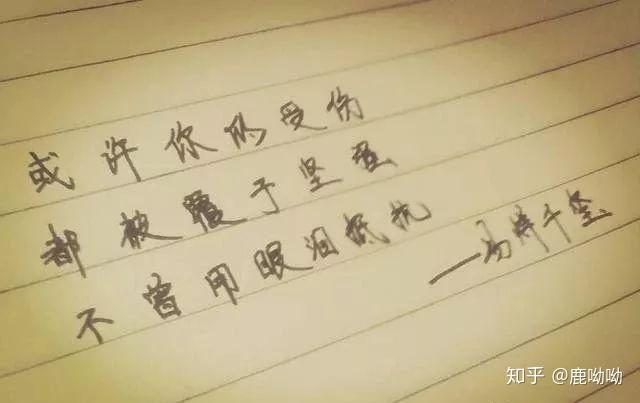 或许你所受伤
都被覆于坚茧
不曾用眼泪抵抗
——易烊千玺
知乎 @鹿呦呦